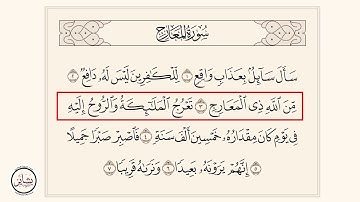 سُورَةُ المَعَارِجِ
سَأَلَ سَآئِلُۢ بِعَذَابٖ وَاقِعٖ ١ لِّلۡكَٰفِرِينَ لَيۡسَ لَهُۥ دَافِعٞ ٢
مِّنَ ٱللَّهِ ذِي ٱلۡمَعَارِجِ ٣ تَعۡرُجُ ٱلۡمَلَٰٓئِكَةُ وَٱلرُّوحُ إِلَيۡهِ
فِي يَوۡمٖ كَانَ مِقۡدَارُهُۥ خَمۡسِينَ أَلۡفَ سَنَةٖ ٤ فَٱصۡبِرۡ صَبۡرٗا جَمِيلًا
٥ إِنَّهُمۡ يَرَوۡنَهُۥ بَعِيدٗا ٦ وَنَرَىٰهُ قَرِيبٗا ٧